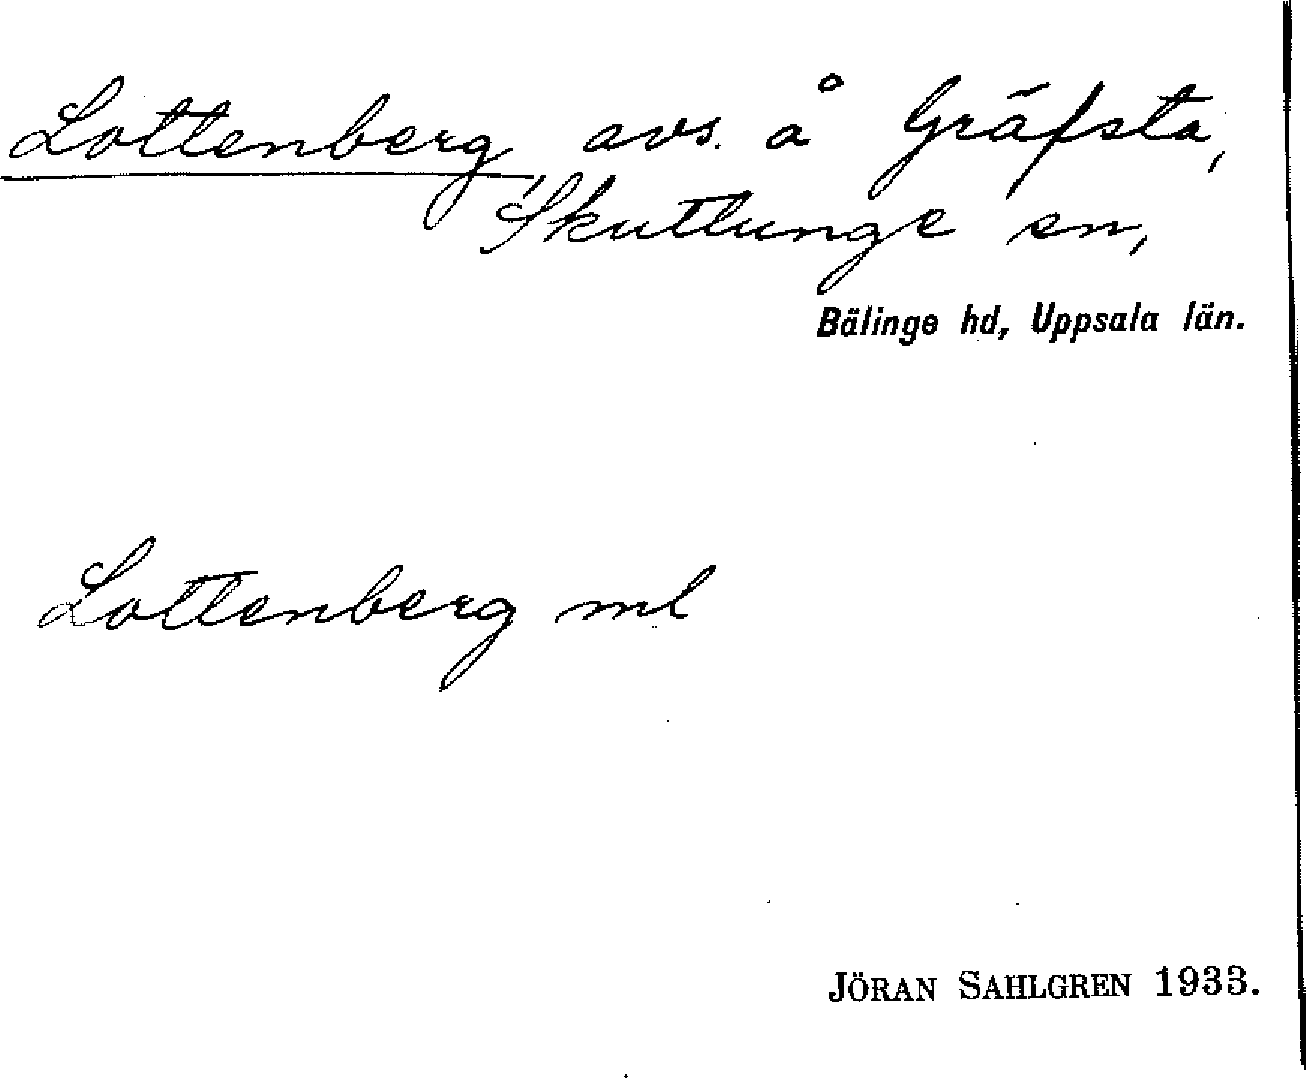 Lottenberg, avs. å Gräfsta,
Skuttunge sn,
Bälinge hd, Uppsala län.
Lottenberg ml
JÖRAN SAHLGREN 1933.